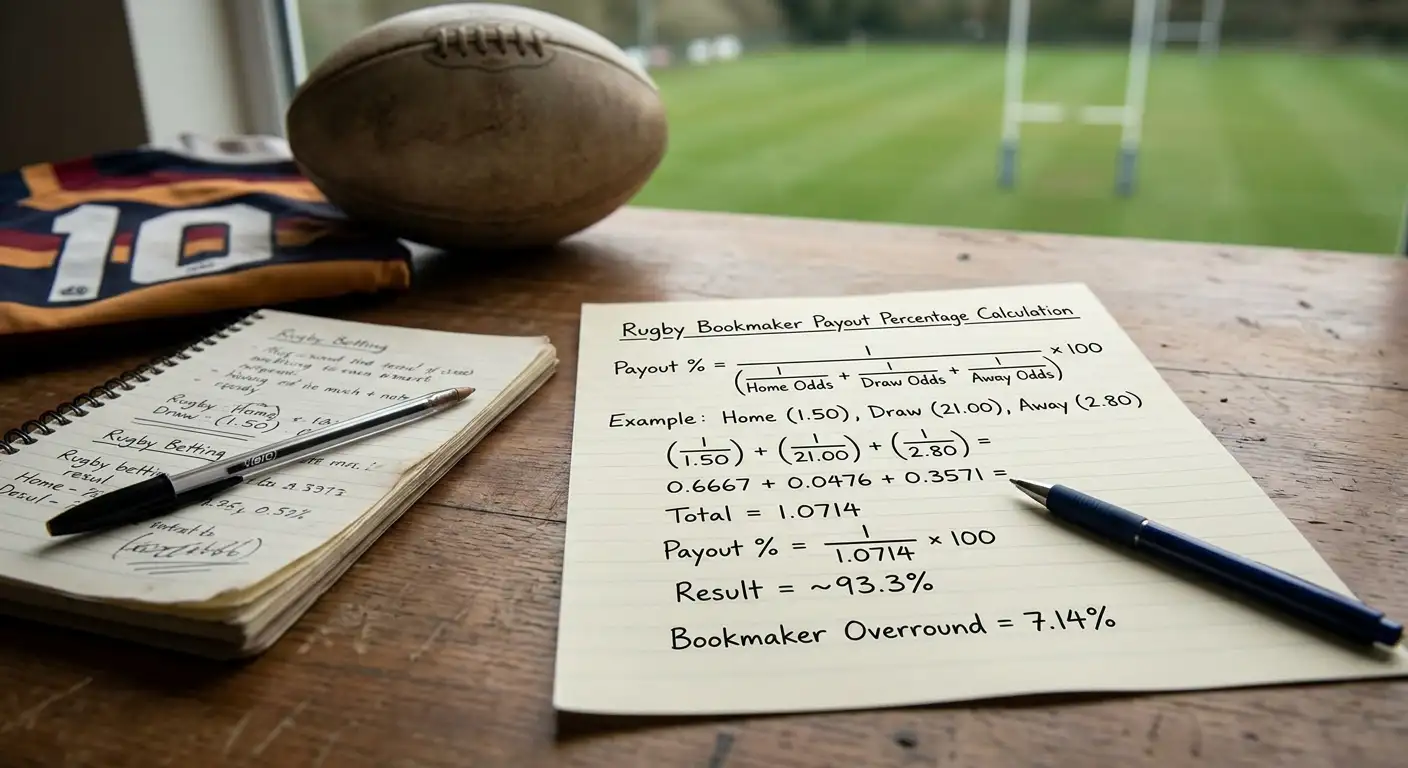 10
Rugby Betting
Rugby Home
Draw - (1.50)
Rugby Betting
Rugby
resul
Home -
Rugby Bookmaker Payout Percentage Calculation
Payout % = 1 / (1/Home Odds + 1/Draw Odds + 1/Away Odds) × 100
Example: Home (1.50), Draw (21.00), Away (2.80)
(1/1.50) + (1/21.00) + (1/2.80) =
0.6667 + 0.0476 + 0.3571 =
Total = 1.0714
Payout % = 1/1.0714 × 100
Result = ~93.3%
Bookmaker Overround = 7.14%